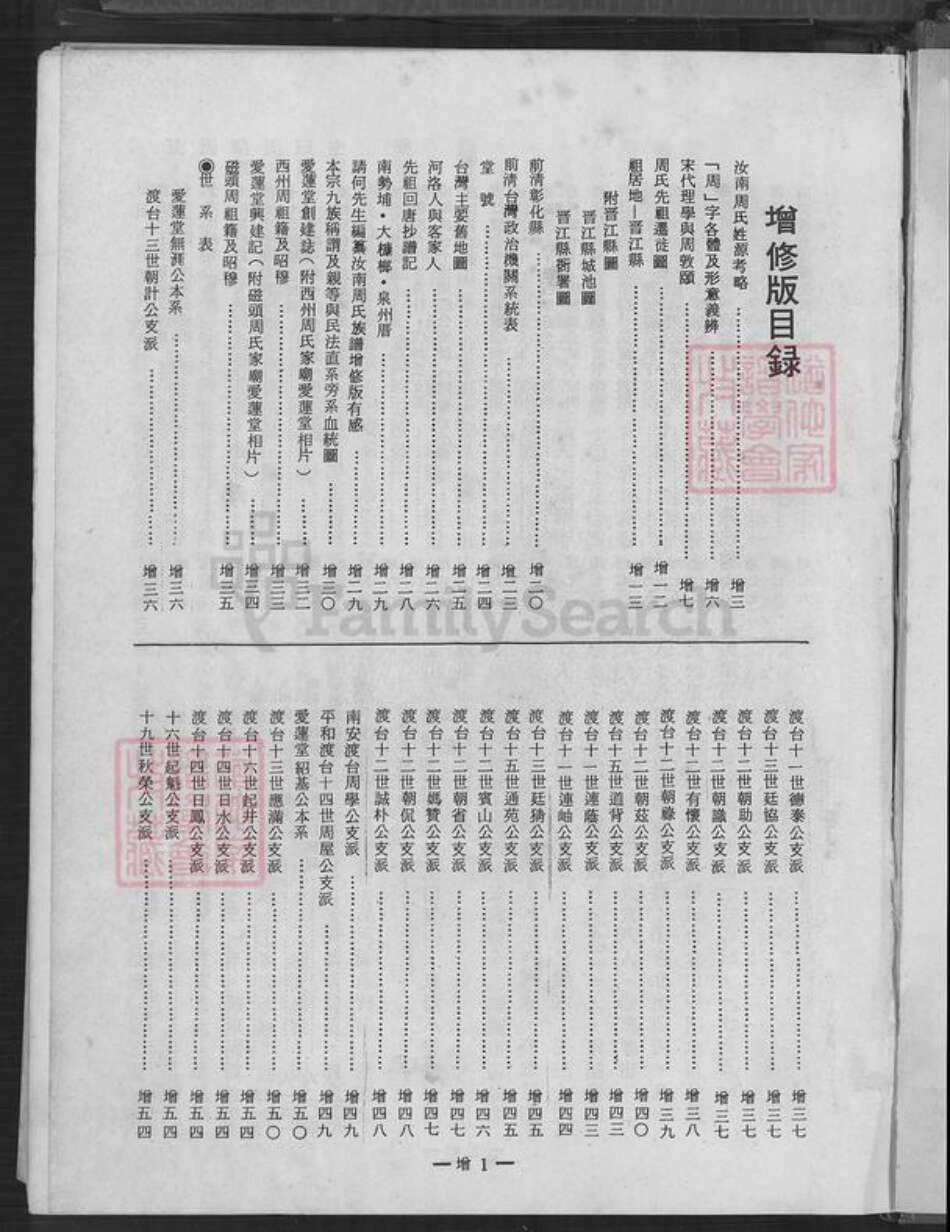 增修版目錄
汝南周氏姓源考略………增三
「周」字各體及形意義辨………增六
宋代理學與周敦頤………增七
周氏先祖遷徙圖………增一二
祖居地—晋江縣………增一三
附晋江縣圖
晋江縣城池圖
晋江縣衙署圖
前清彰化縣………增二〇
前清台灣政治機關系統表………增二三
堂號………增二四
台灣主要舊地圖………增二五
河洛人與客家人………增二六
先祖回唐抄譜記………增二八
南勢埔・大槺榔・泉州厝………增二九
請何先生編纂汝南周氏族譜增修版有感………增二九
本宗九族稱謂及親等與民法直系旁系血統圖………增三〇
愛蓮堂創建誌（附西州周氏家廟愛蓮堂相片）………增三二
西州周祖籍及昭穆………增三三
愛蓮堂興建記（附磁頭周氏家廟愛蓮堂相片）………增三四
磁頭周祖籍及昭穆………增三五
◉世系表
愛蓮堂無涯公本系………增三六
渡台十三世朝計公支派………增三六
渡台十一世德泰公支派………增三七
渡台十三世廷協公支派………增三七
渡台十二世朝助公支派………增三七
渡台十二世朝識公支派………增三七
渡台十二世有懷公支派………增三八
渡台十二世朝祿公支派………增三九
渡台十二世朝茲公支派………增四〇
渡台十五世道背公支派………增四三
渡台十一世連蔭公支派………增四三
渡台十一世連岫公支派………增四四
渡台十三世廷猜公支派………增四五
渡台十五世通苑公支派………增四五
渡台十二世賓山公支派………增四六
渡台十二世朝省公支派………增四七
渡台十二世媽贊公支派………增四七
渡台十二世朝侃公支派………增四八
渡台十二世誠朴公支派………增四八
南安渡台周學公支派………增四九
平和渡台十四世周屋公支派………增四九
愛蓮堂紹基公本系………增五〇
渡台十三世應滿公支派………增五〇
渡台十六世起井公支派………增五四
渡台十四世日水公支派………增五四
渡台十四世日鳳公支派………增五四
十六世起魁公支派………增五四
十九世秋榮公支派………增五四
—增1—
FamilySearch